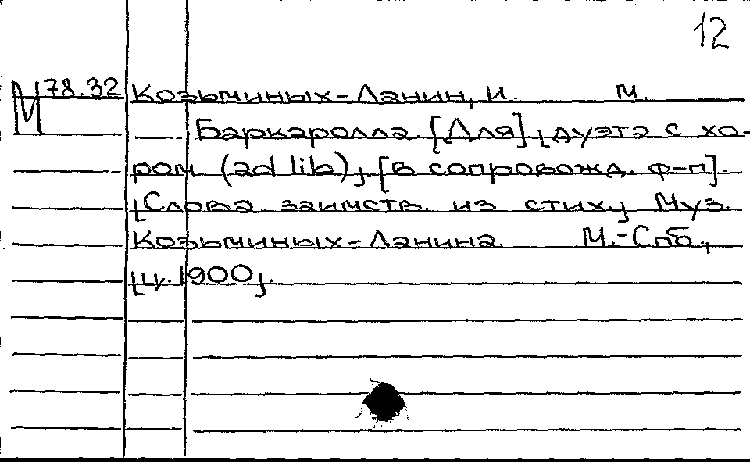 12
М 78.32 Козьминых-Ланин, И. М.
Баркаролла [Для] [дуэта с хо-
ром (ad lib)], [в сопровожд. ф-п].
[Слова заимств. из стих.] Муз.
Козьминых-Ланина. М.-Спб.,
[ц. 1900].